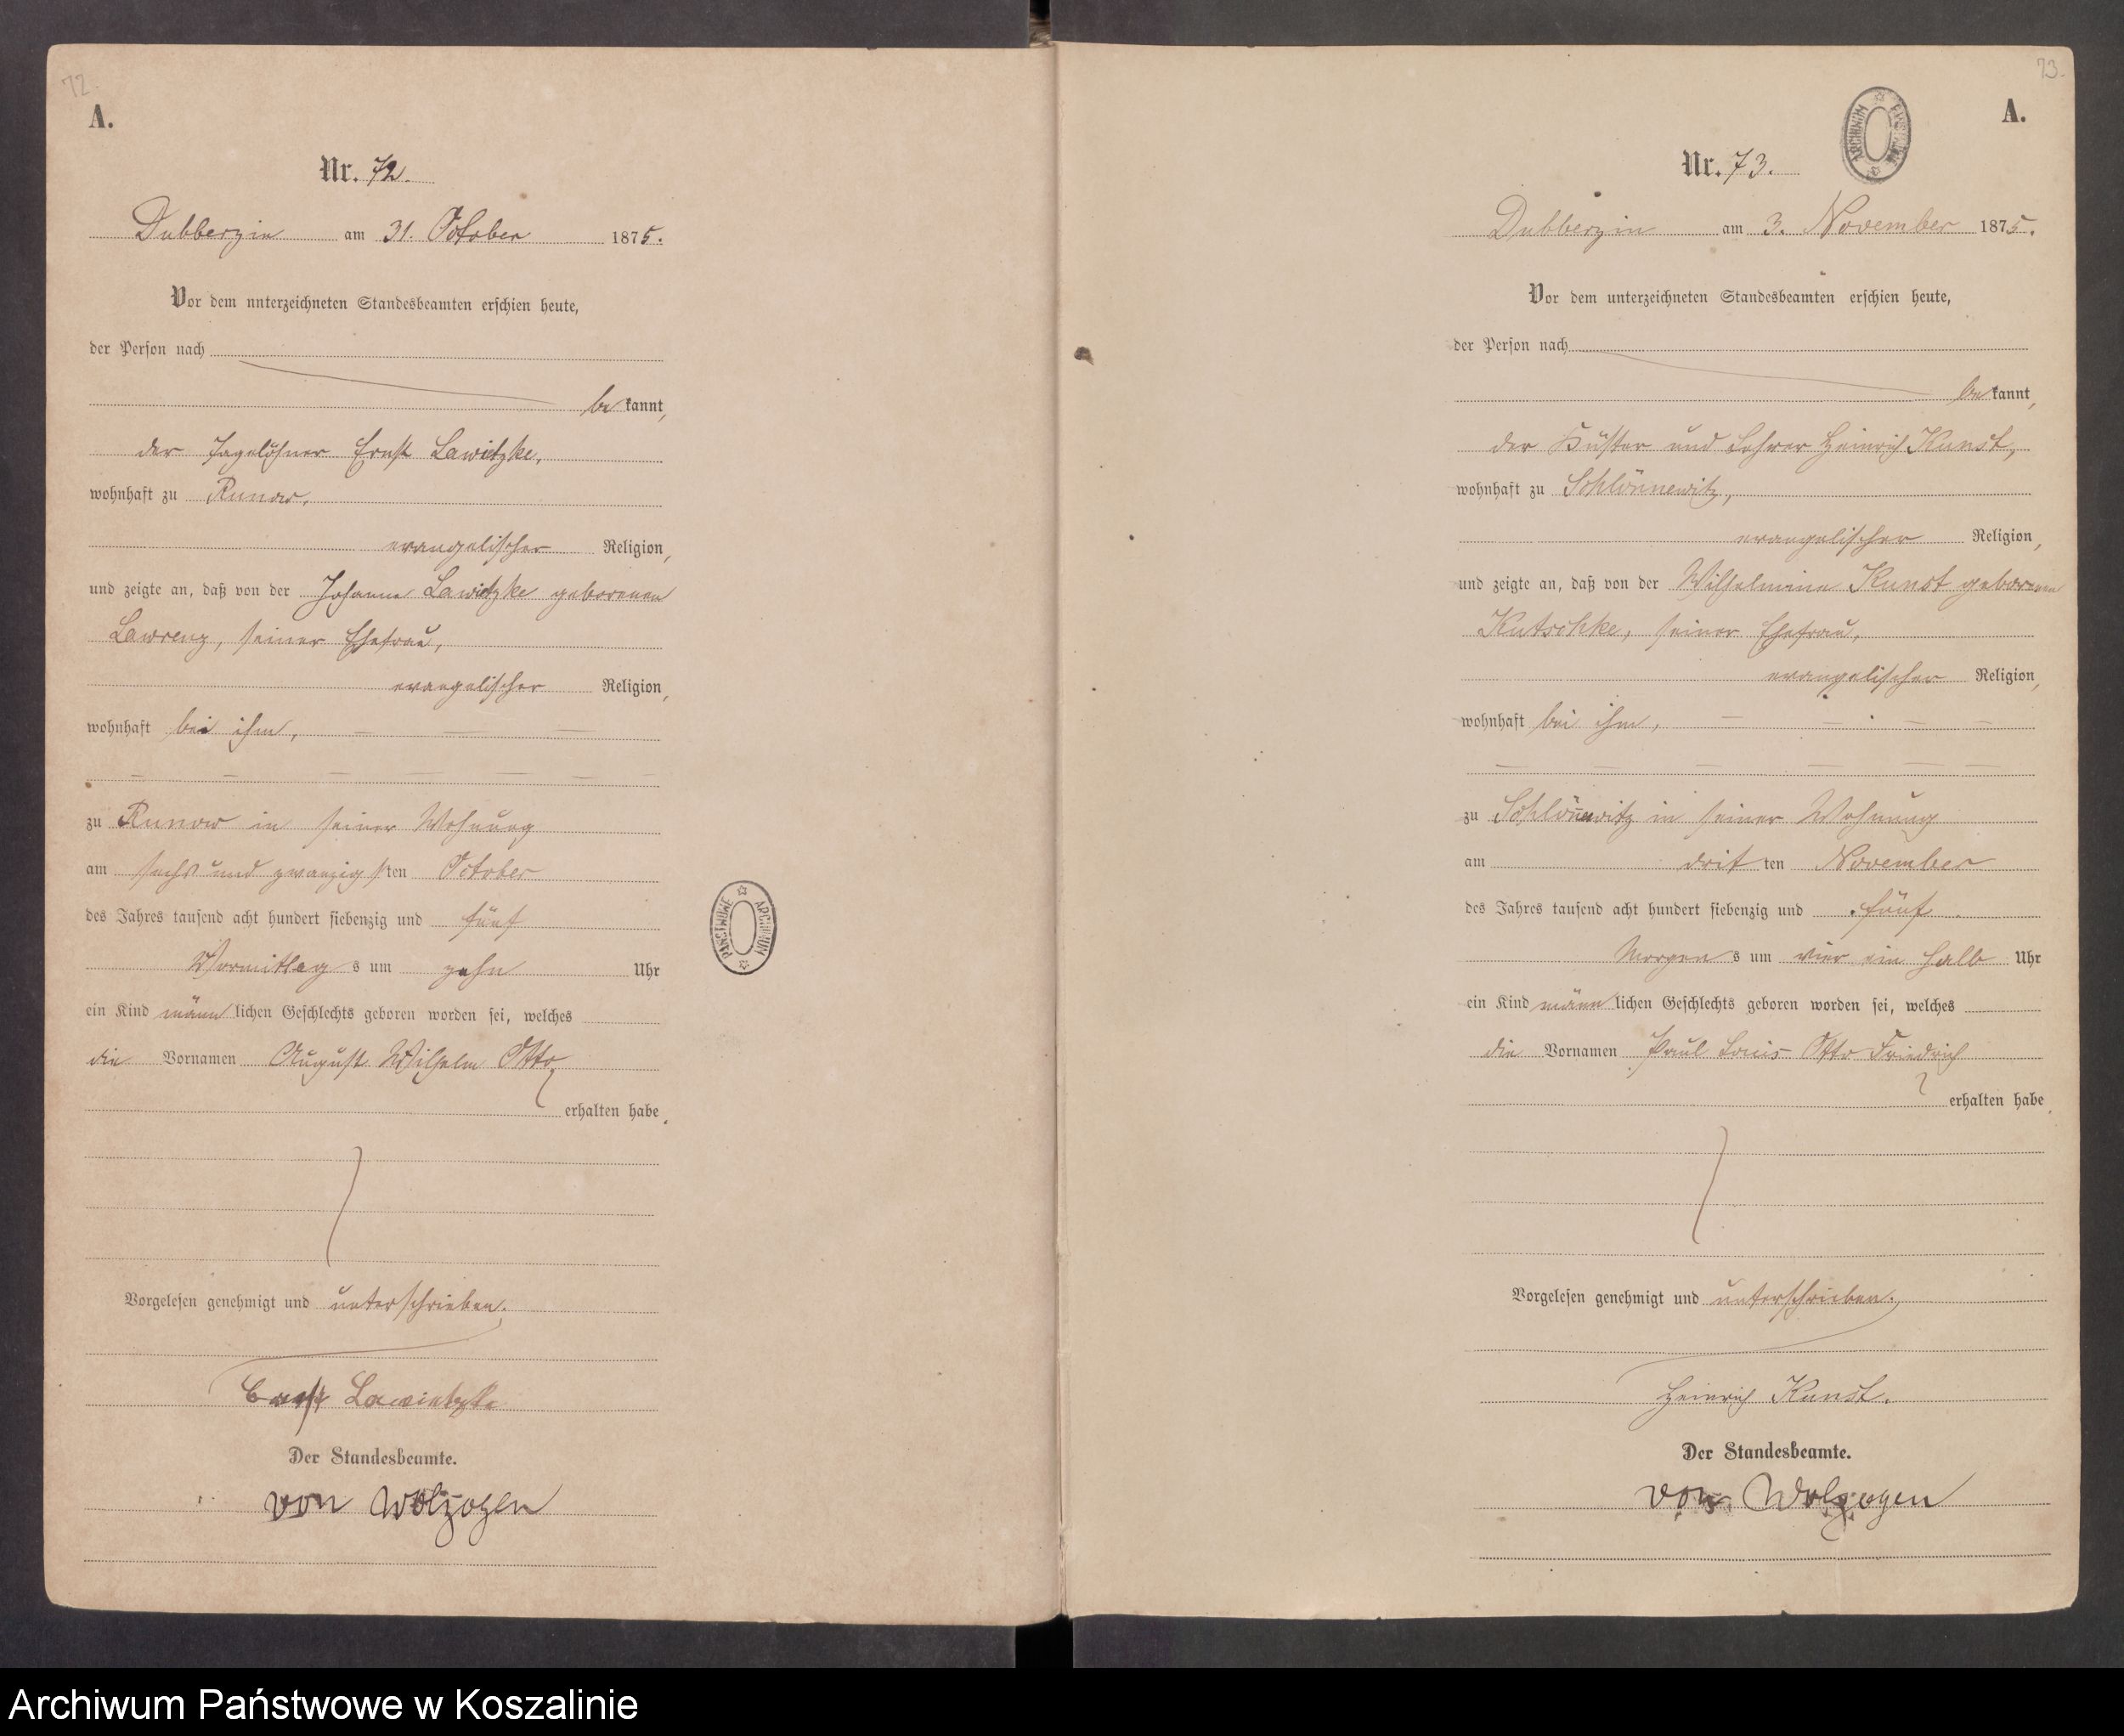 72.
A.
Nr. 72.
Dubberzin am 31. October 1875.
Vor dem unterzeichneten Standesbeamten erschien heute,
der Person nach
bekannt,
der Tagelöhner Ernst Lawitzke,
wohnhaft zu Runow,
evangelischer Religion,
und zeigte an, daß von der Johanne Lawitzke geborenen
Lawrenz, seiner Ehefrau,
evangelischer Religion,
wohnhaft bei ihm, — — —
— — — — — — —
zu Runow in seiner Wohnung
am sechs und zwanzigsten October
des Jahres tausend acht hundert siebenzig und fünf
Vormittags um zehn Uhr
ein Kind männlichen Geschlechts geboren worden sei, welches
die Vornamen August Wilhelm Otto
erhalten habe.
Vorgelesen genehmigt und unterschrieben.
Ernst Lawietzke
Der Standesbeamte.
von Wolzogen
PAŃSTWOWE ARCHIWUM
73.
A.
ARCHIWUM PAŃSTWOWE
Nr. 73.
Dubberzin am 3. November 1875.
Vor dem unterzeichneten Standesbeamten erschien heute,
der Person nach
bekannt,
der Küster und Lehrer Heinrich Kunst,
wohnhaft zu Schlönnewitz,
evangelischer Religion,
und zeigte an, daß von der Wilhelmine Kunst geborenen
Kutschke, seiner Ehefrau,
evangelischer Religion,
wohnhaft bei ihm, — — — —
— — — — — —
zu Schlönnewitz in seiner Wohnung
am dritten November
des Jahres tausend acht hundert siebenzig und fünf
Morgens um vier ein halb Uhr
ein Kind männlichen Geschlechts geboren worden sei, welches
die Vornamen Paul Louis Otto Friedrich
erhalten habe.
Vorgelesen genehmigt und unterschrieben.
Heinrich Kunst.
Der Standesbeamte.
von Wolzogen
Archiwum Państwowe w Koszalinie